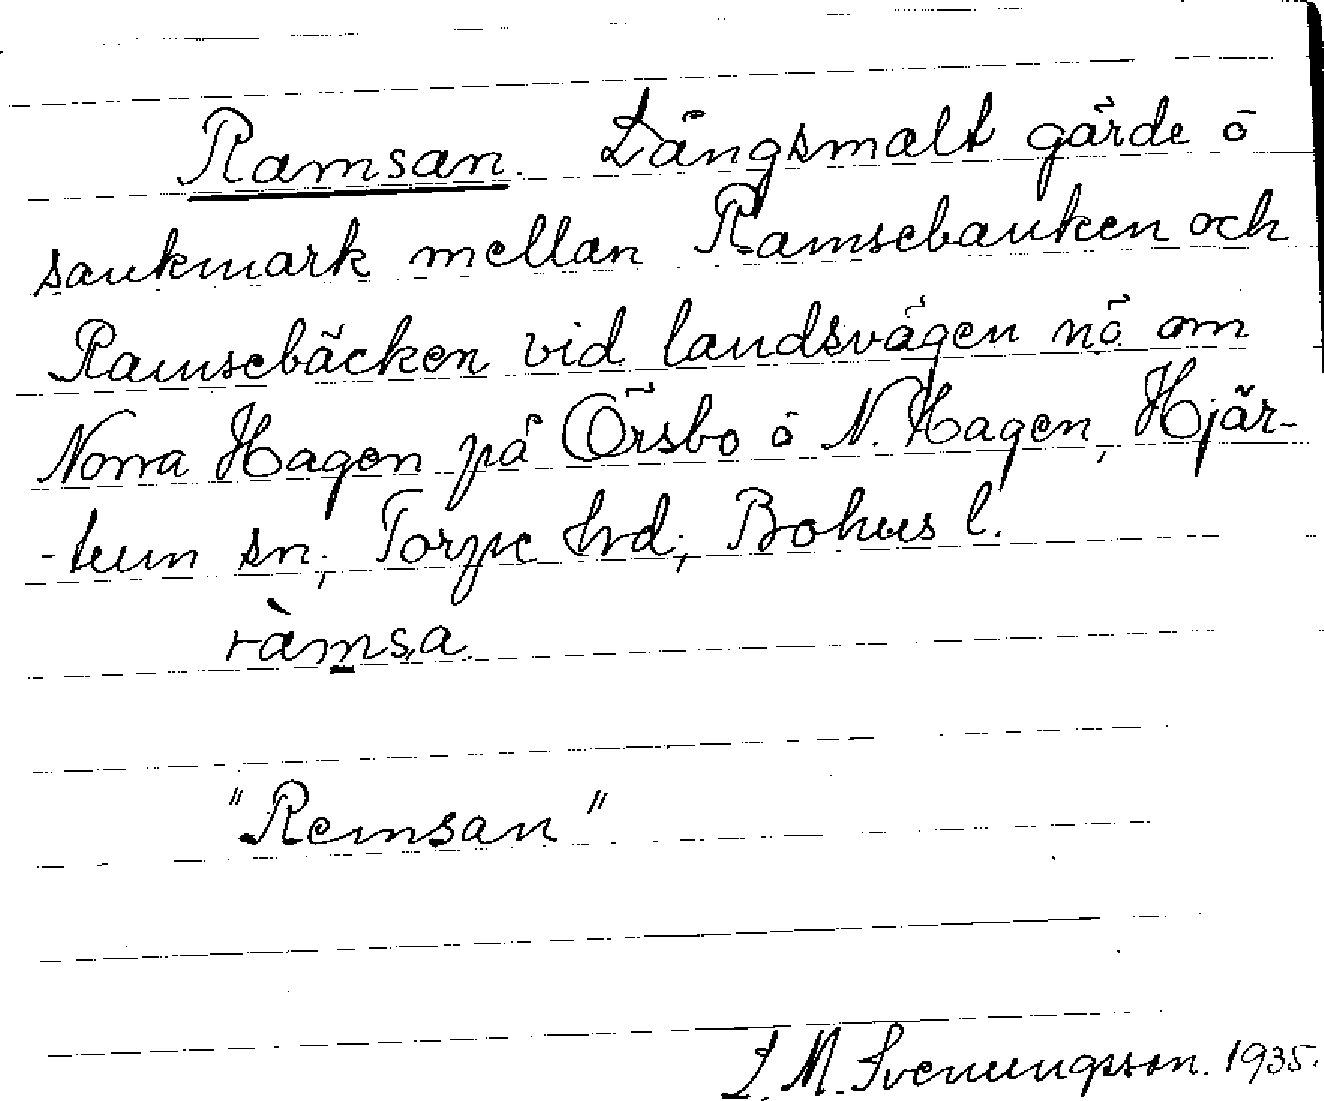 Ramsan. Långsmalt gärde ö
sankmark mellan Ramsebanken och
Ramsebäcken vid landsvägen nö om
Norra Hagen på Örsbo ö N. Hagen, Hjär-
-tum sn, Torpe hrd, Bohus l.
ràmsa
"Remsan"
L. M. Svenungsson. 1935.